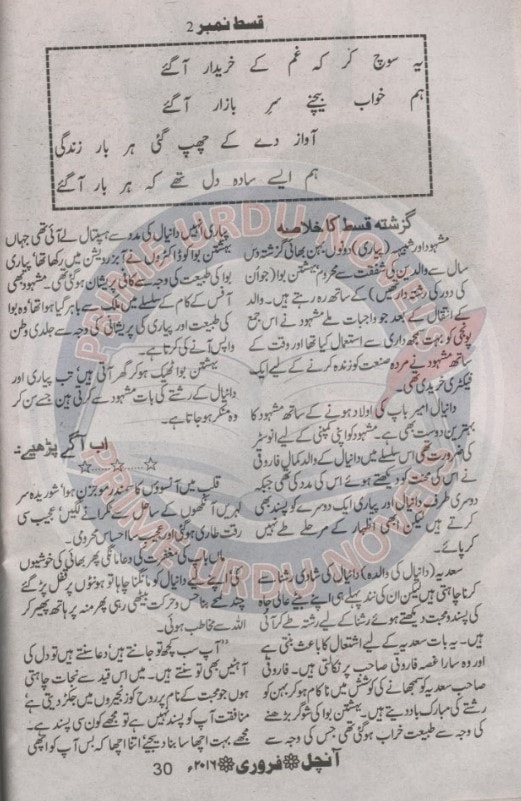 قسط نمبر 2
یہ سوچ کر کہ غم کے خریدار آگئے
ہم خواب بیچنے سرِ بازار آگئے
آواز دے کے چھپ گئی ہر بار زندگی
ہم ایسے سادہ دل تھے کہ ہر بار آگئے
گزشتہ قسط کا خلاصہ
مشہود اور شہبینہ (پیاری) دونوں بہن بھائی گزشتہ دس
سال سے والدین کی شفقت سے محروم بہشتن بوا (جو اُن
کی دور کی رشتہ دار تھیں) کے ساتھ رہ رہے ہیں۔ والد
کے انتقال کے بعد جو واجبات ملے مشہود نے اس جمع
پونجی کو بہت سمجھ داری سے استعمال کیا تھا اور وقت کے
ساتھ مشہود نے مردہ صنعت کو زندہ کرنے کے لیے ایک
فیکٹری خریدی تھی۔
دانیال امیر باپ کی اولاد ہونے کے ساتھ مشہود کا
بہترین دوست بھی ہے۔ مشہود کو اپنی کمپنی کے لیے انوسٹر
کی ضرورت تھی اس سلسلے میں دانیال کے والد کمال فاروقی
نے اس کی محنت کو دیکھتے ہوئے اس کی مدد کی تھی جبکہ
دوسری طرف دانیال اور پیاری ایک دوسرے کو پسند بھی
کرتے ہیں لیکن ابھی اظہار کے مرحلے طے نہیں
کر پائے۔
سعدیہ (دانیال کی والدہ) دانیال کی شادی رشنا سے
کرنا چاہتی ہیں لیکن ان کی نند پہلے ہی اپنے بیٹے عالی جاہ
کی پسند و محبت دیکھتے ہوئے رشنا کے لیے رشتہ طے کر آئی
ہیں۔ یہ بات سعدیہ کے لیے اشتعال کا باعث بنتی ہے
اور وہ سارا غصہ فاروقی صاحب پر نکالتی ہیں۔ فاروقی
صاحب سعدیہ کو سمجھانے کی کوشش میں ناکام ہو کر بہن کو
رشتے کی مبارک باد دیتے ہیں۔ بہشتن بوا کی شوگر بڑھنے
کی وجہ سے طبیعت خراب ہوگئی تھی جس کی وجہ سے
پیاری انہیں دانیال کی مدد سے ہسپتال لے آئی تھی جہاں
بہشتن بوا کو ڈاکٹروں نے آبزرویشن میں رکھا تھا پیاری
بوا کی طبیعت کی وجہ سے کافی پریشان ہوگئی تھی۔ مشہود بھی
آفس کے کام کے سلسلے میں ملک سے باہر گیا ہوا تھا وہ بوا
کی طبیعت اور پیاری کی پریشانی کی وجہ سے جلدی وطن
واپس آنے کی کرتا ہے۔
بہشتن بوا ٹھیک ہو کر گھر آتی ہیں تب پیاری اور
دانیال کے رشتے کی بات مشہود سے کرتی ہیں جسے سن کر
وہ متفکر ہو جاتا ہے۔
اب آگے پڑھیے:۔
☆......☆☆......☆
قلب میں آنسوؤں کا سمندر موجزن ہوا شوریدہ سر
لہریں آنکھوں کے ساحل سے ٹکرانے لگیں عجیب سی
رقت طاری ہوگئی اور عجیب سا احساس محرومی۔
ماں باپ کی مغفرت کی دعا مانگی پھر بھائی کی خوشیوں
کی اپنے لیے دانیال کو مانگنا چاہا تو ہونٹوں پر قفل پڑ گئے
چند لمحے بنا حس و حرکت بیٹھی رہی پھر منہ پر ہاتھ پھیر کر
اللہ سے مخاطب ہوئی۔
"آپ سب کچھ تو جانتے ہیں دعا سنتے ہیں تو دل کی
آہٹیں بھی تو سنتے ہیں۔ میں اس قید سے نجات چاہتی
ہوں جو محبت کے نام پر روح کو زنجیروں میں جکڑ دیتی ہے
منافقت آپ کو پسند نہیں ہے تو مجھے کون سی پسند ہے۔
مجھے بہت اچھا سا بنا دیجیے اتنا اچھا کہ بس آپ کو اچھی
آنچل ❁ فروری ❁ ۲۰۱۶ء 30
PRIME URDU NOVELS
PRIME URDU NOVELS